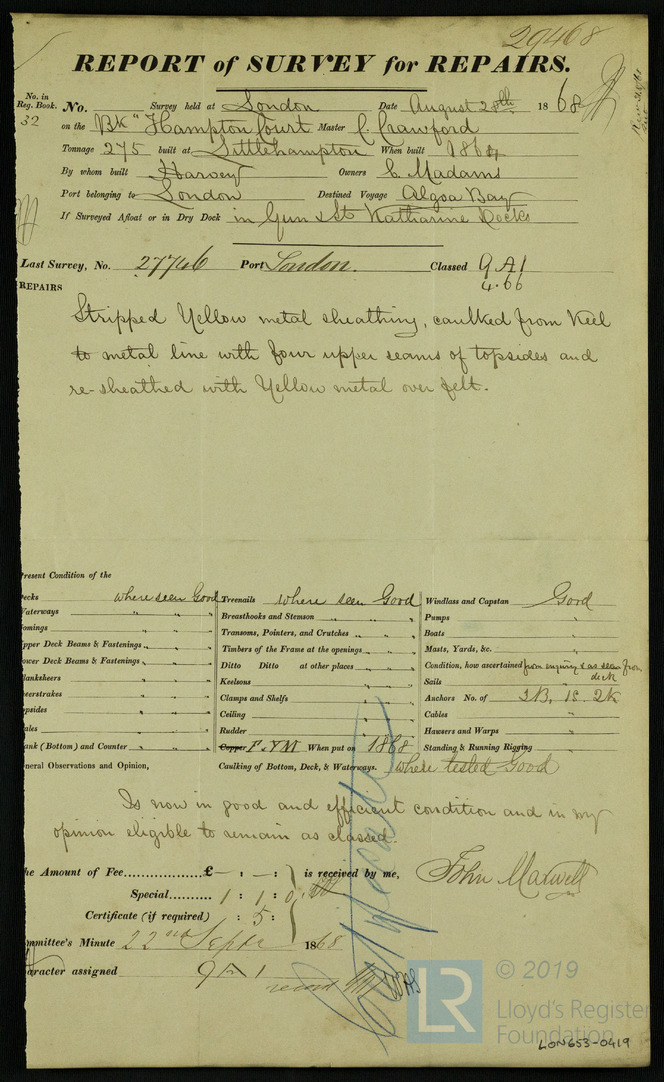 29468
REPORT of SURVEY for REPAIRS.
No. in Reg. Book. No. Survey held at London Date August 28th 1868
32 on the Bk "Hampton Court Master C. Crawford
Tonnage 275 built at Littlehampton When built 1864
By whom built Harvey Owners C. Madams
Port belonging to London Destined Voyage Algoa Bay
If Surveyed Afloat or in Dry Dock in Gun & St Katharine Docks
Last Survey, No. 27746 Port London. Classed 9 A1
4.66
REPAIRS
Stripped Yellow metal sheathing, caulked from Keel
to metal line with four upper seams of topsides and
re-sheathed with Yellow metal over felt.
resent Condition of the
ecks where seen Good Treenails where seen Good Windlass and Capstan Good
Vaterways " " " Breasthooks and Stemson " " " Pumps "
omings " " " Transoms, Pointers, and Crutches " " " Boats "
pper Deck Beams & Fastenings " " " Timbers of the Frame at the openings " " " Masts, Yards, &c. "
ower Deck Beams & Fastenings " " " Ditto Ditto at other places " " " Condition, how ascertained from enquiry & as seen from deck
lanksheers " " " Keelsons " " " Sails "
eerstrakes " " " Clamps and Shelfs " " " Anchors No. of 3B, 1S 2K
opsides " " " Ceiling " " Cables "
ales " " " Rudder " " Hawsers and Warps "
ank (Bottom) and Counter " " " Copper F.YM When put on 1868 Standing & Running Rigging "
neral Observations and Opinion, Caulking of Bottom, Deck, & Waterways. where tested Good
Is now in good and efficient condition and in my
opinion eligible to remain as classed.
he Amount of Fee £ - : - : is received by me, John Maxwell
Special 1 : 1 : 0
Certificate (if required) : 5 :
mmittee's Minute 22nd Septr 1868
aracter assigned 9 A 1
© 2019
LR Lloyd's Register
Foundation
LON653-0419